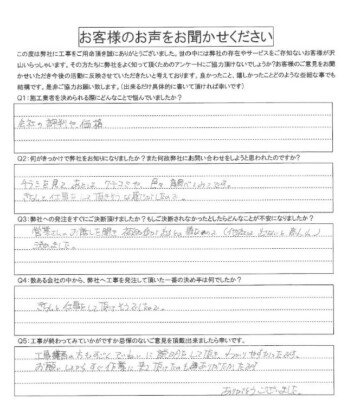 お客様のお声をお聞かせください
この度は弊社に工事をご用命頂き誠にありがとうございました。世の中には弊社の存在やサービスをご存知ないお客様が沢
山いらっしゃいます。その方たちに弊社をよく知って頂くためのアンケートにご協力頂けないでしょうか?お客様のご意見をお聞
かせいただき今後の活動に反映させていただきたいと考えております。良かったこと、嬉しかったことどのような些細な事でも
結構です。是非ご協力お願い致します。(出来るだけ具体的に書いて頂ければ幸いです)
Q1:施工業者を決められる際にどんなことで悩んでいましたか?
会社の評判や価格
Q2:何がきっかけで弊社をお知りになりましたか?また何故弊社にお問い合わせをしようと思われたのですか?
チラシを見て
きちんと仕事をして頂きそうな
Q3:弊社への発注をすぐにご決断頂けましたか?もしご決断されなかったとしたらどんなことが不安になりましたか?
営業さんのお話しを聞き
決めました。
Q4:数ある会社の中から、弊社へ工事を発注して頂いた一番の決め手は何でしたか?
きちんと仕事をして頂けそうでしたので。
Q5:工事が終わってみていかがですか忌憚のないご意見を頂戴出来ましたら幸いです。
工事
お願いしてからすぐ作業に来て頂けたのも
ありがとうございました。